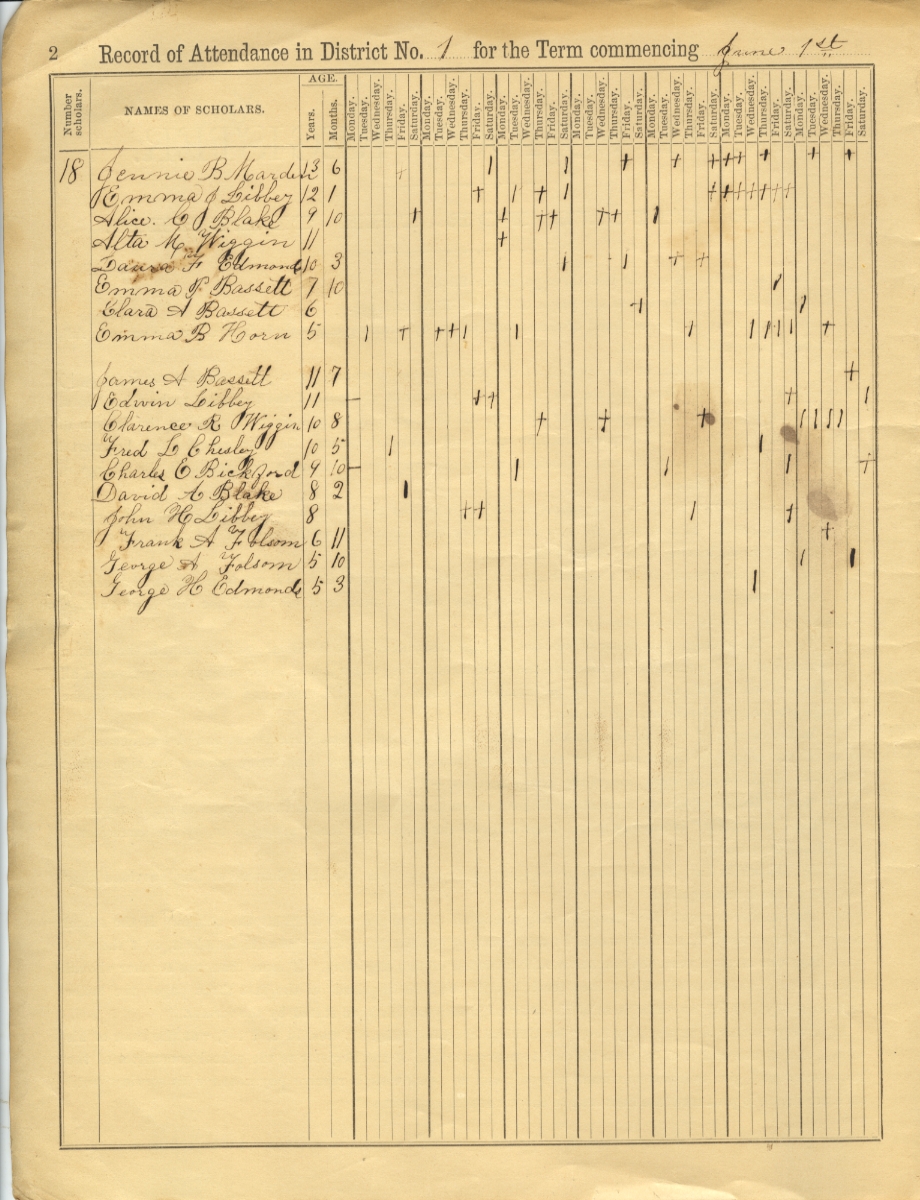 2 Record of Attendance in District No. 1 for the Term commencing June 1st
Number scholars. NAMES OF SCHOLARS. AGE. Years. Months. Monday. Tuesday. Wednesday. Thursday. Friday. Saturday. Monday. Tuesday. Wednesday. Thursday. Friday. Saturday. Monday. Tuesday. Wednesday. Thursday. Friday. Saturday. Monday. Tuesday. Wednesday. Thursday. Friday. Saturday. Monday. Tuesday. Wednesday. Thursday. Friday. Saturday. Monday. Tuesday. Wednesday. Thursday. Friday. Saturday. Monday. Tuesday. Wednesday. Thursday. Friday. Saturday.
18 Jennie B Marden 13 6
Emma J Libby 12 1
Alice. C Blake 9 10
Alta M. Wiggin 11
Laura F Edmonds 10 3
Emma P Bassett 7 10
Clara A Bassett 6
Emma B Horn 5
James A Bassett 11 7
Edwin Libbey 11
Clarence R Wiggin 10 8
Fred L Chesley 10 5
Charles E Bickford 9 10
David A Blake 8 2
John H Libbey 8
Frank A Folsom 6 11
George A Folsom 5 10
George H Edmonds 5 3